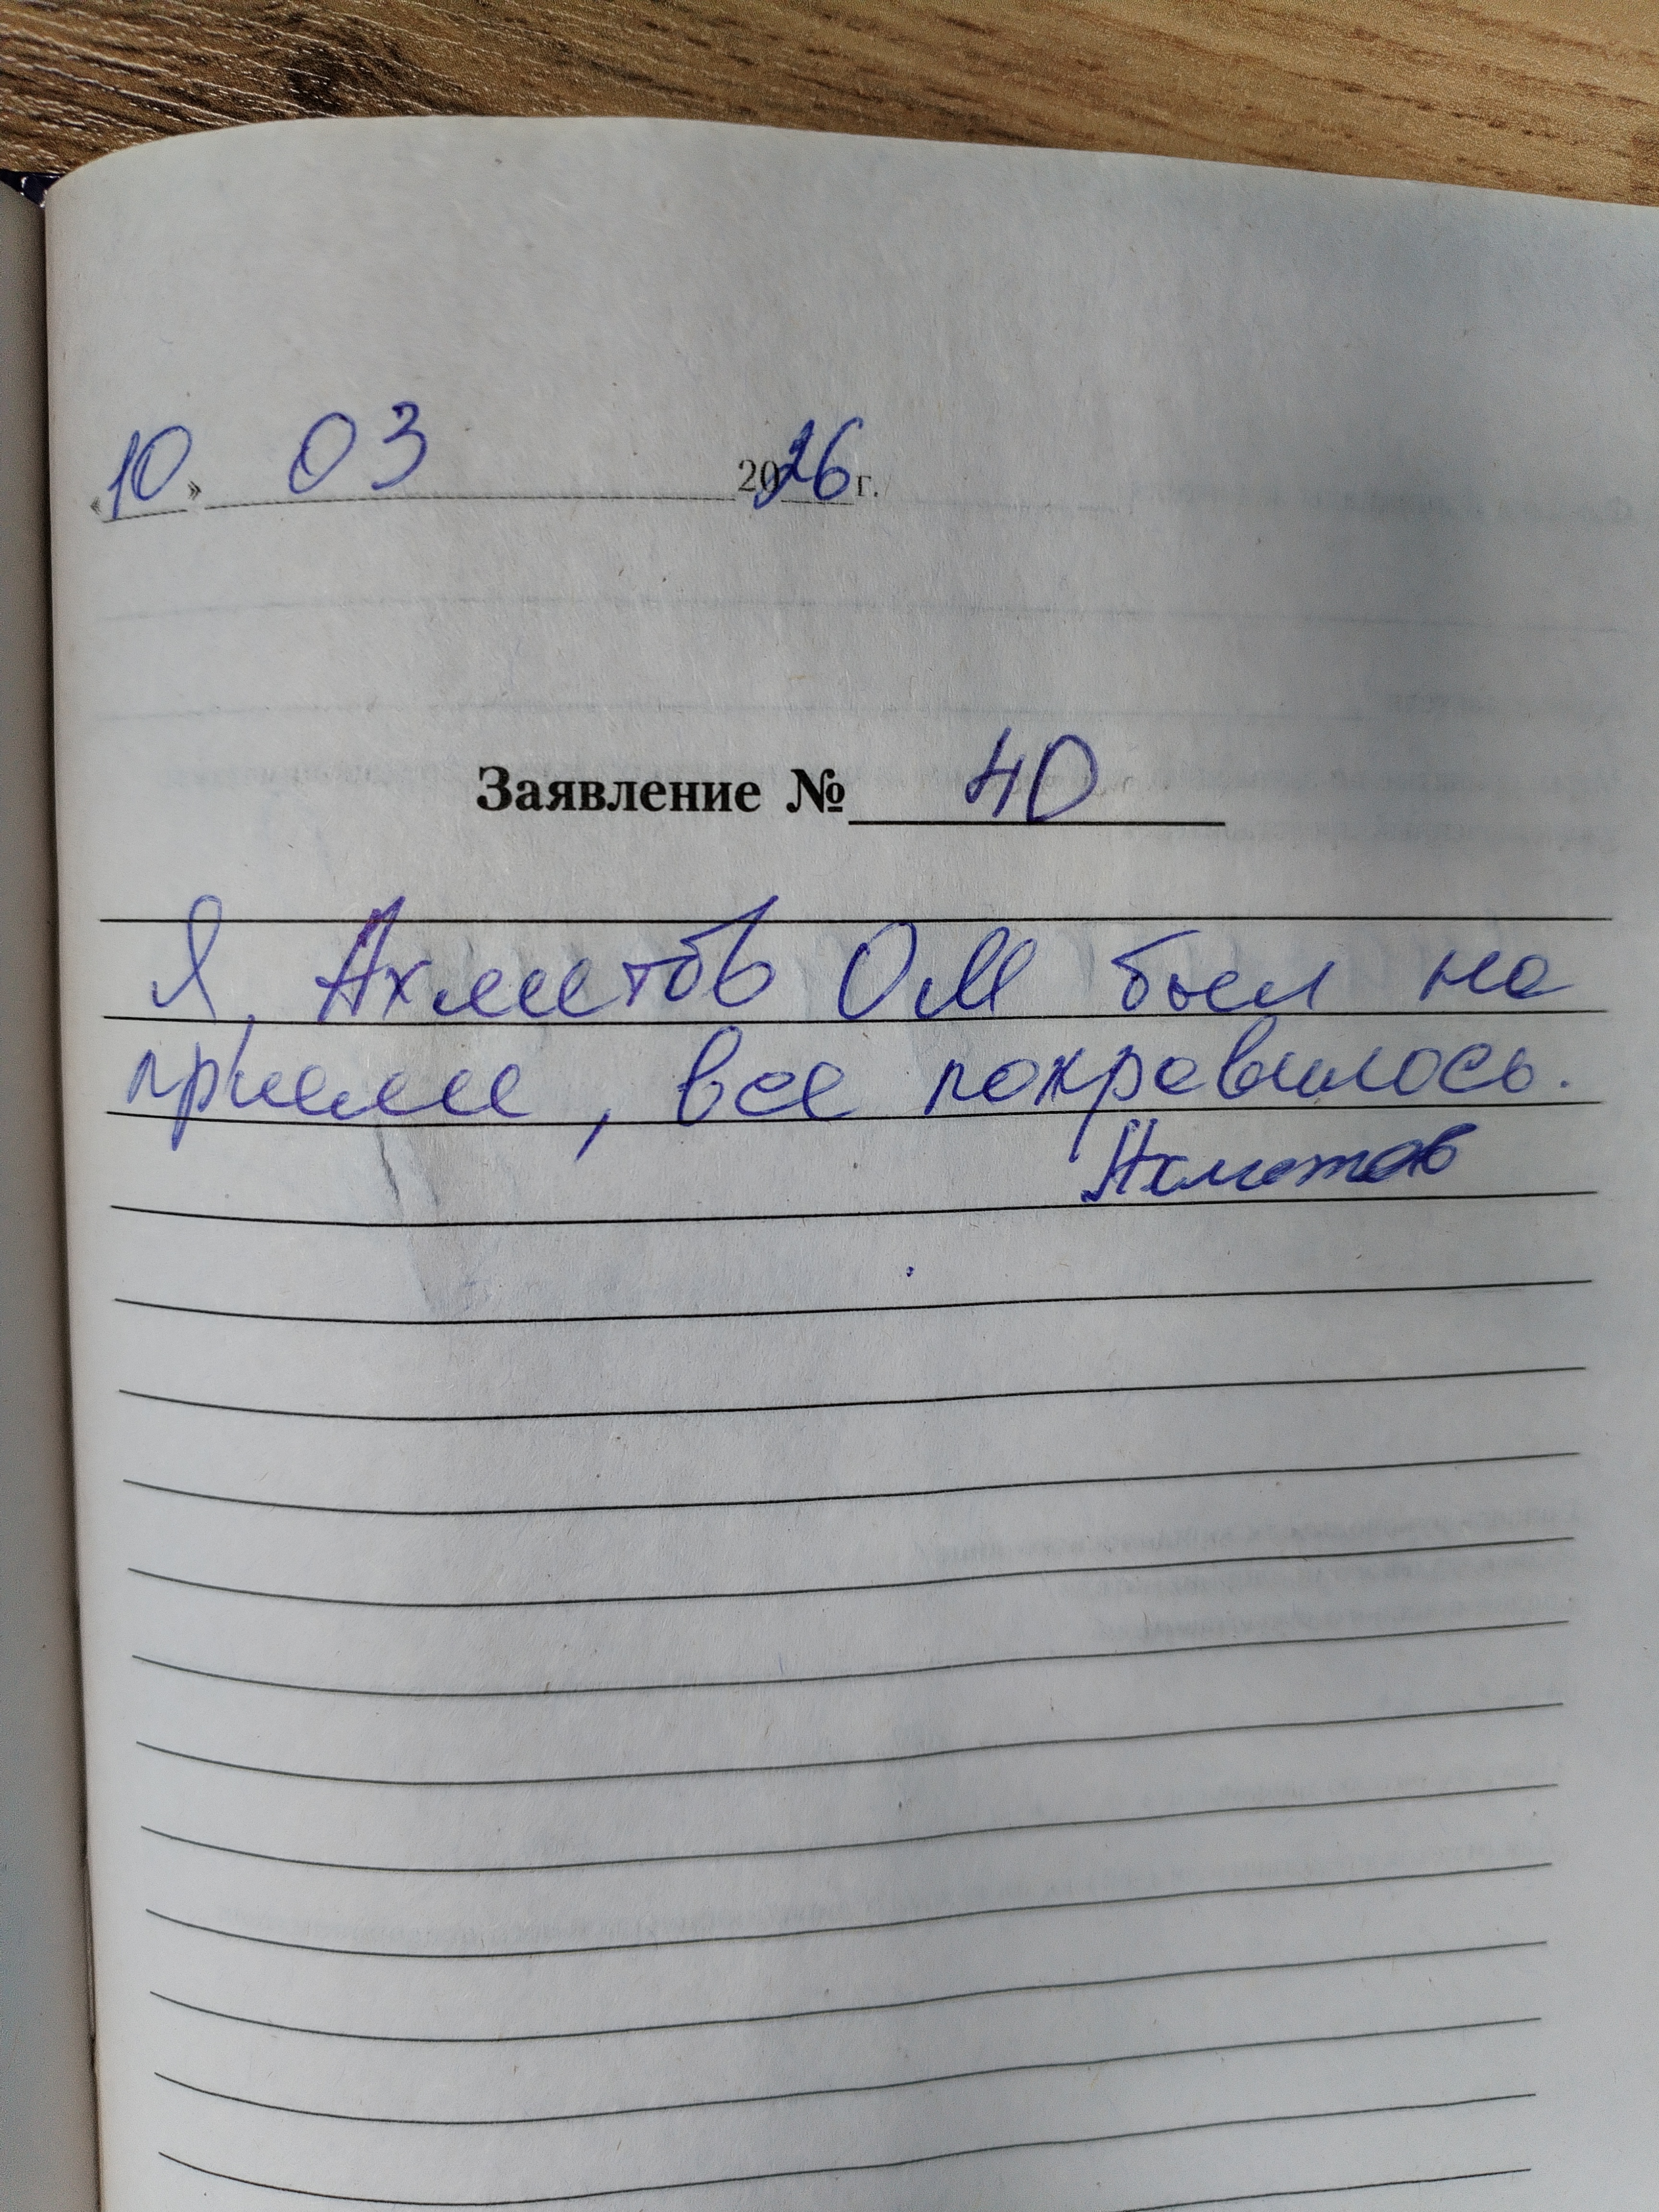 «10» 03 2026 г.
Заявление № 40
Я, Ахметов ОМ был на
приеме, все понравилось.
Ахметов